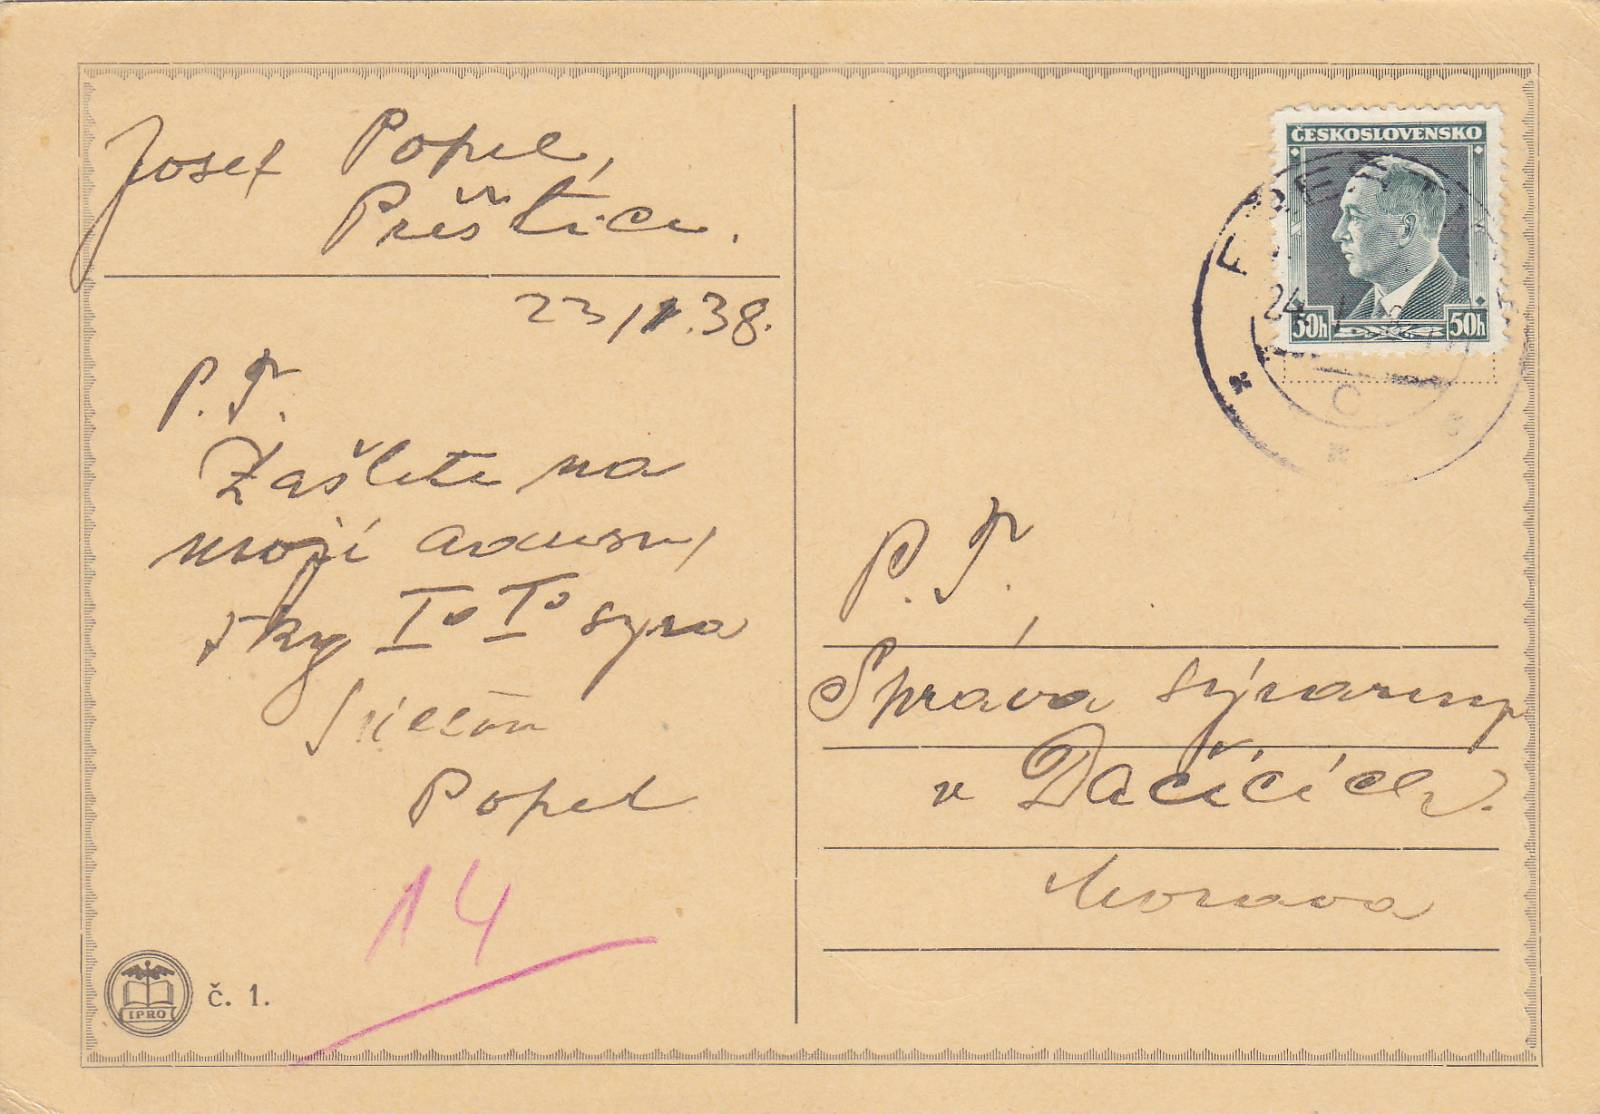 Josef Popel,
Přeštice.
23/1.38.
P. T.
Zašlete na
moji adresu,
5 kg Iª Iª syra
Popel
14
IPRO
č. 1.
ČESKOSLOVENSKO
50h 50h
24
P. T.
Správa sýrárny
v Dačicích.
Morava